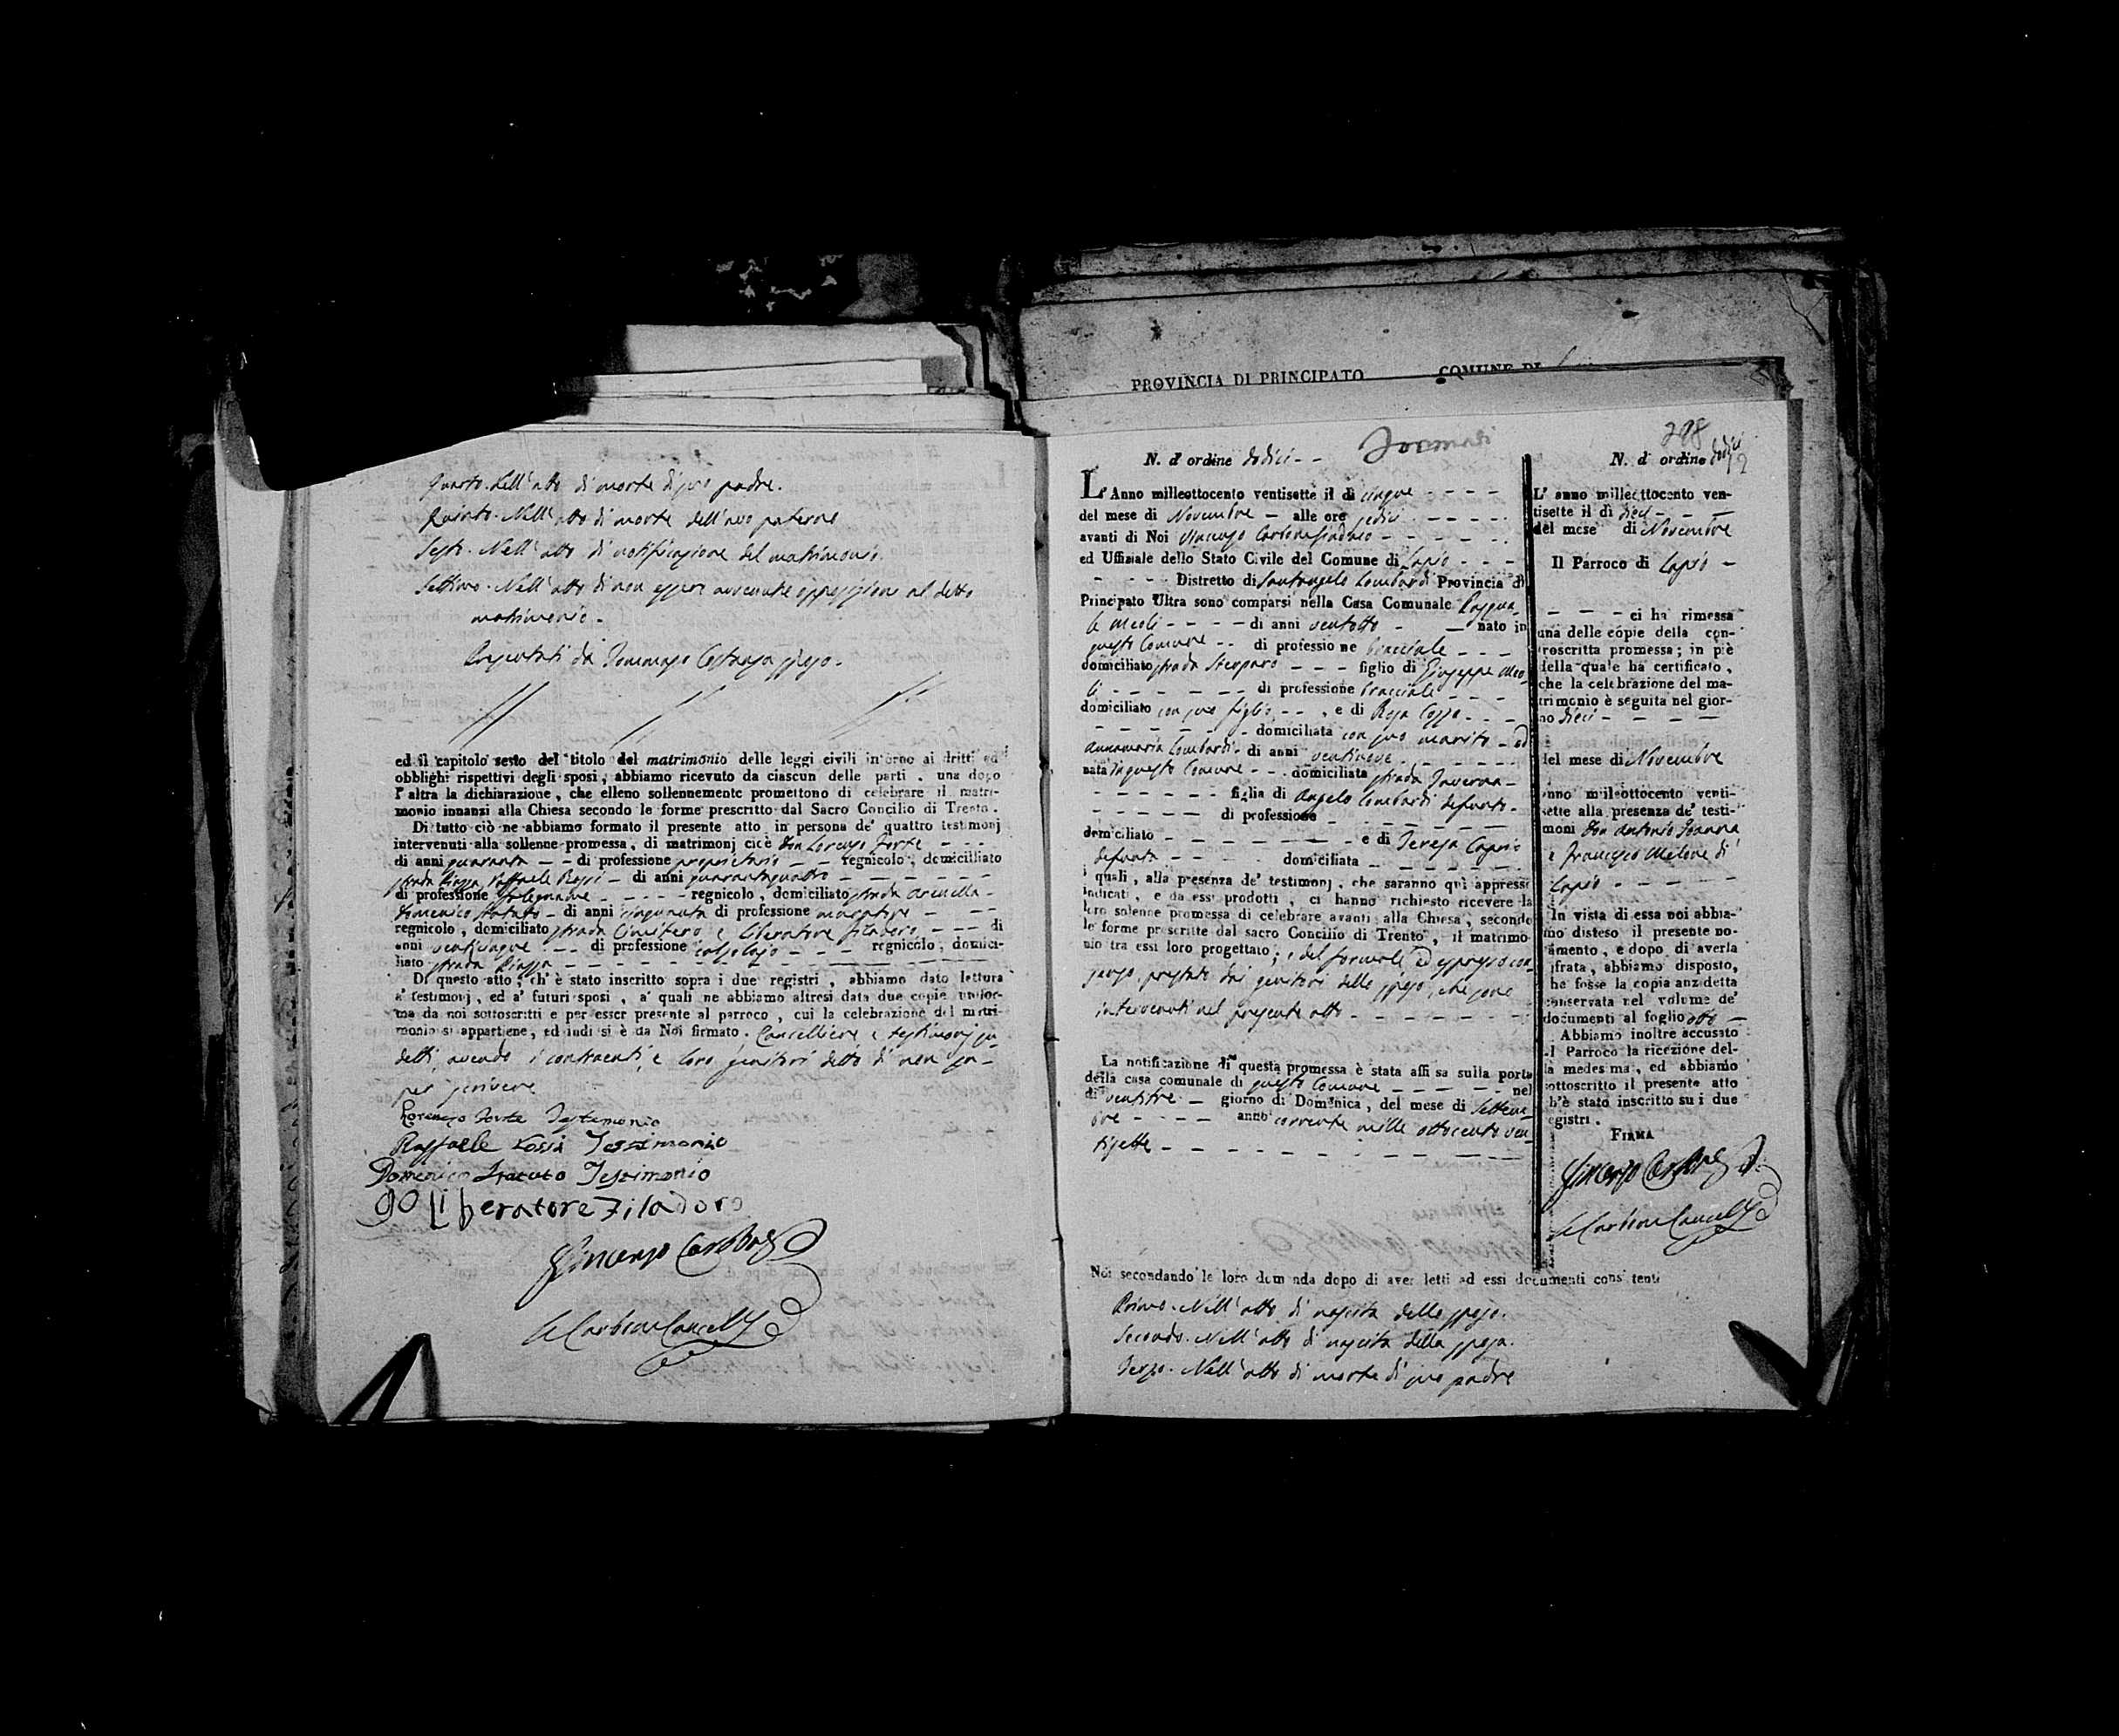 PROVINCIA DI PRINCIPATO COMUNE DI
Quarto. Nell'atto di morte di suo padre.
Quinto. Nell'atto di morte dell'avo paterno
Sesto. Nell'atto di notificazione del matrimonio.
Settimo. Nell'atto di non essere avvenuta opposizione al detto
matrimonio.
Presentati da Tommaso Costanza sposo.
ed il capitolo sesto del titolo del matrimonio delle leggi civili intorno ai dritti ed
obblighi rispettivi degli sposi, abbiamo ricevuto da ciascun delle parti, una dopo
l'altra la dichiarazione, che elleno sollennemente promettono di celebrare il matri-
monio innanzi alla Chiesa secondo le forme prescritto dal Sacro Concilio di Trento.
Di tutto ciò ne abbiamo formato il presente atto in persona de' quattro testimonj
intervenuti alla sollenne promessa, di matrimonj cioè Don Lorenzo Forte
di anni quaranta di professione proprietario regnicolo, domicilliato
strada Piazza, Raffaele Rossi di anni quarantaquattro
di professione falegname regnicolo, domiciliato strada
Domenico Statuto di anni cinquanta di professione
regnicolo, domiciliato strada Cimitero e Liberatore Filadoro di
anni venticinque di professione calzolajo regnicolo, domici-
liato strada Piazza
Di questo atto, ch'è stato inscritto sopra i due registri, abbiamo dato lettura
a' testimonj, ed a' futuri sposi, a' quali ne abbiamo altresì data due copie unifor-
me da noi sottoscritti e per esser presente al parroco, cui la celebrazione del matri-
monio si appartiene, ed indi si è da Noi firmato. Cancelliere e testimonj su-
detti, avendo i contraenti, e loro genitori detto di non sa-
per scrivere
Lorenzo Forte Testimonio
Raffaele Rossi Testimonio
Domenico Statuto Testimonio
Liberatore Filadoro
Vincenzo Carbone
Carbone Cancelle
298
N. d'ordine dodici
L'Anno milleottocento ventisette il dì cinque
del mese di Novembre alle ore sedici
avanti di Noi Vincenzo Carbone Sindaco
ed Uffiziale dello Stato Civile del Comune di Lapio
Distretto di Santangelo Lombardi Provincia di
Principato Ultra sono comparsi nella Casa Comunale Pasqua-
le Meoli di anni ventotto nato in
questo Comune di professione bracciale
domiciliato strada figlio di Giuseppe Meo-
li di professione bracciale
domiciliato con suo figlio, e di Rosa Cozza
domiciliata con suo marito ed
Annamaria Lombardi di anni ventinove
nata in questo Comune domiciliata strada Taverna
figlia di Angelo Lombardi defunto
di professione
domiciliato e di Teresa Caprio
defunta domiciliata
i quali, alla presenza de' testimonj, che saranno qui appresso
indicati, e da essi prodotti, ci hanno richiesto ricevere la
loro solenne promessa di celebrare avanti alla Chiesa, secondo
le forme prescritte dal sacro Concilio di Trento, il matrimo-
nio tra essi loro progettato; e del formale ed espresso con-
senso prestato dai genitori dello sposo, che sono
intervenuti nel presente atto
La notificazione di questa promessa è stata affissa sulla porta
della casa comunale di questo Comune nel
dì ventitre giorno di Domenica, del mese di Settem-
bre anno corrente mille ottocento ven-
tisette
N. d'ordine dodici
12
L'anno milleottocento ven-
tisette il dì dieci
del mese di Novembre
Il Parroco di Lapio
ci ha rimessa
una delle copie della con-
troscritta promessa; in piè
della quale ha certificato,
che la celebrazione del ma-
trimonio è seguita nel gior-
no dieci
del mese di Novembre
anno milleottocento venti-
sette alla presenza de' testi-
moni Don Antonio Joanna
e Francesco Melone di
Lapio
In vista di essa noi abbia-
mo disteso il presente no-
tamento, e dopo di averla
cifrata, abbiamo disposto,
che fosse la copia anzidetta
conservata nel volume de'
documenti al foglio otto
Abbiamo inoltre accusato
al Parroco la ricezione del-
la medesima, ed abbiamo
sottoscritto il presente atto
ch'è stato inscritto su i due
registri.
FIRMA
Vincenzo Carbone
Carbone Cancelle
Noi secondando le loro domanda dopo di aver letti ad essi documenti consistenti
Primo. Nell'atto di nascita dello sposo.
Secondo. Nell'atto di nascita della sposa.
Terzo. Nell'atto di morte di suo padre